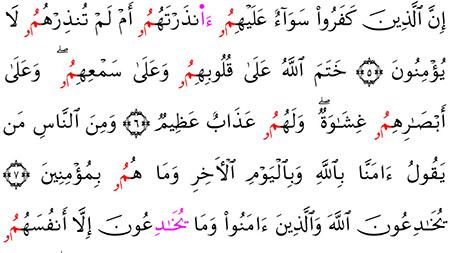 إِنَّ ٱلَّذِينَ كَفَرُوا۟ سَوَآءٌ عَلَيْهِمُۥ ءَا۬نذَرْتَهُمُۥ أَمْ لَمْ تُنذِرْهُمُۥ لَا
يُؤْمِنُونَ ۝٥ خَتَمَ ٱللَّهُ عَلَىٰ قُلُوبِهِمُۥ وَعَلَىٰ سَمْعِهِمُۥۖ وَعَلَىٰ
أَبْصَٰرِهِمُۥ غِشَٰوَةٌۖ وَلَهُمُۥ عَذَابٌ عَظِيمٌ ۝٦ وَمِنَ ٱلنَّاسِ مَن
يَقُولُ ءَامَنَّا بِٱللَّهِ وَبِٱلْيَوْمِ ٱلْأَخِرِ وَمَا هُمُۥ بِمُؤْمِنِينَ ۝٧
يُخَٰدِعُونَ ٱللَّهَ وَٱلَّذِينَ ءَامَنُوا۟ وَمَا يُخَٰدِعُونَ إِلَّآ أَنفُسَهُمُۥ